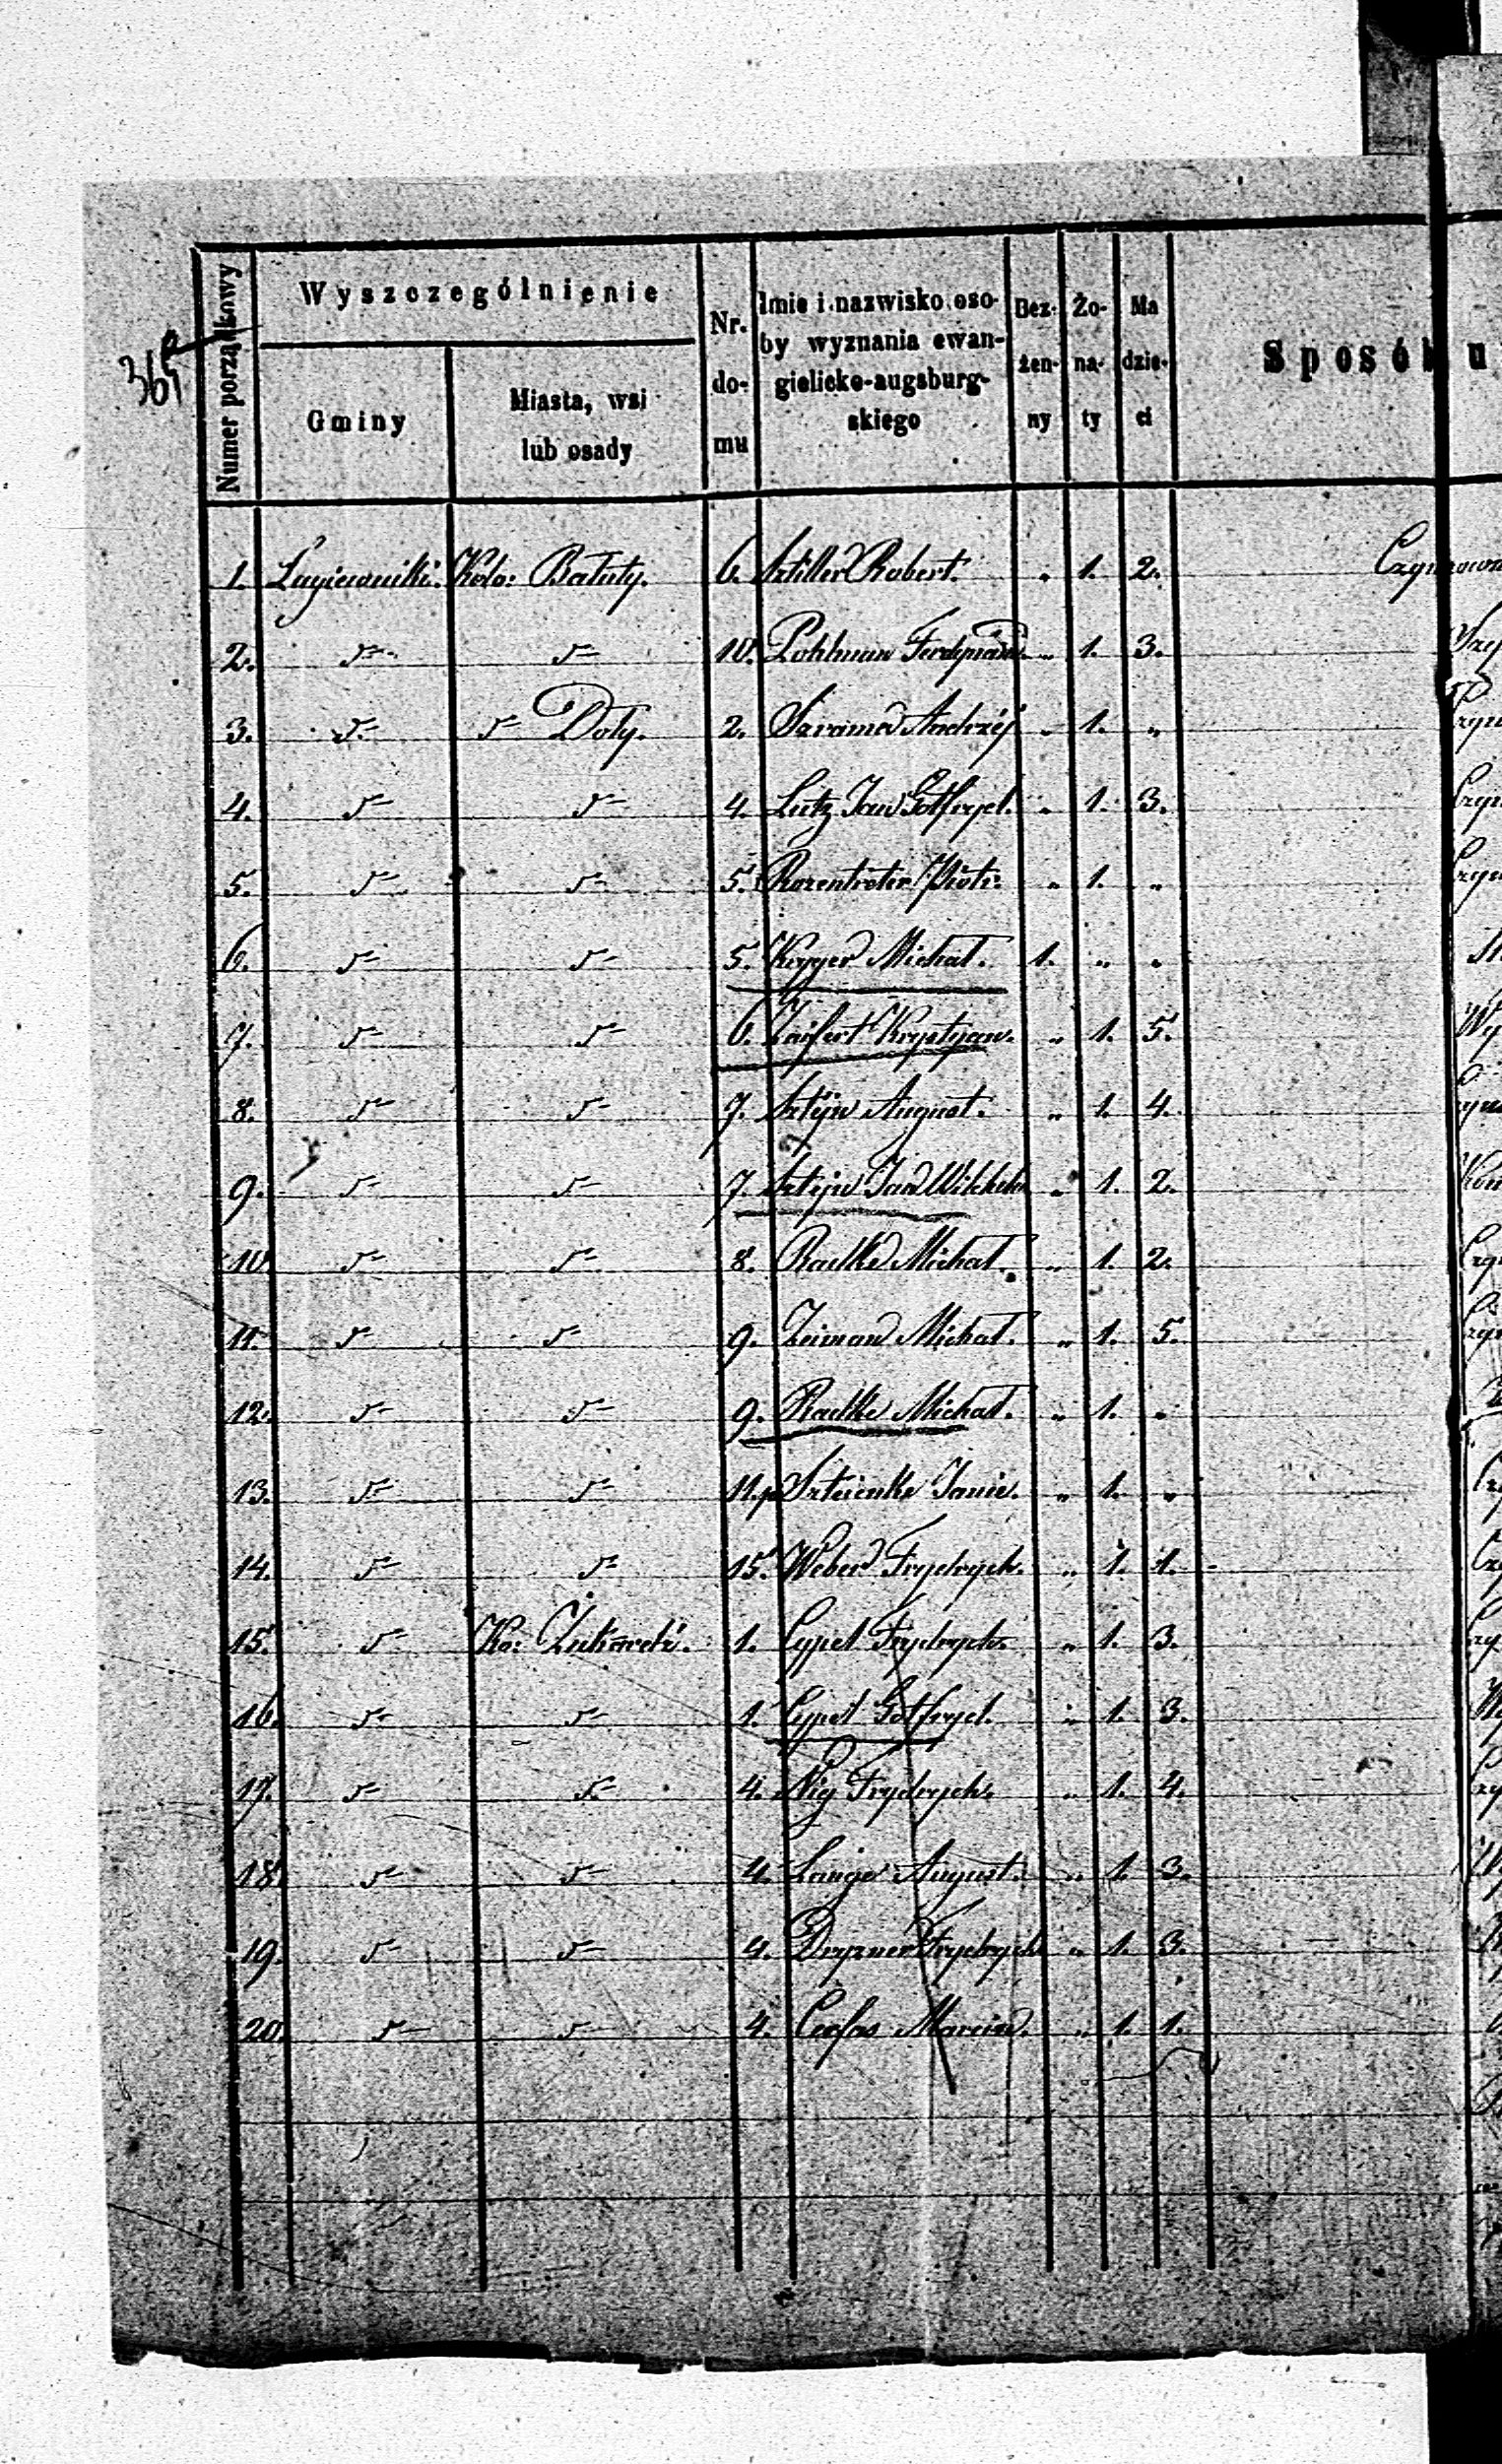 365
Numer porządkowy
Wyszczególnienie
Gminy
Miasta, wsi
lub osady
Nr.
do-
mu
Imie i nazwisko oso-
by wyznania ewan-
gielicko-augsburg-
skiego
Bez-
żen-
ny
Żo-
na-
ty
Ma
dzie-
ci
Sposób u
1. Łagiewniki. Kolo: Bałuty. 6. Sztiller Robert. „ 1. 2.
2. 10. Pohlman Ferdynand „ 1. 3.
3. Doły. 2. Szramer Andrzéj „ 1. „
4. 4. Lutz Jan Gotfryd. „ 1. 3.
5. 5. Rozentreter Piotr. „ 1. „
6. 5. Kryger Michał. 1. „ „
7. 6. Zaifert Krystyan. „ 1. 5.
8. 7. Sztÿn August. „ 1. 4.
9. 7. Sztÿn Jan Wilhelm „ 1. 2.
10. 8. Radke Michał. „ 1. 2.
11. 9. Michał. „ 1. 5.
12. 9. Radke Michał. „ 1. „
13. 11. Szteinke „ 1. „
14. 15. Weber Frydrych. „ 1. 1.
15. Ko: 1. Cypel Frydrych. „ 1. 3.
16. 1. Cypel Gotfryd. „ 1. 3.
17. 4. Nig Frydrych. „ 1. 4.
18. 4. Lange August. „ 1. 3.
19. 4. Dryzner Frydrych „ 1. 3.
20. 4. Marcin. „ 1. 1.